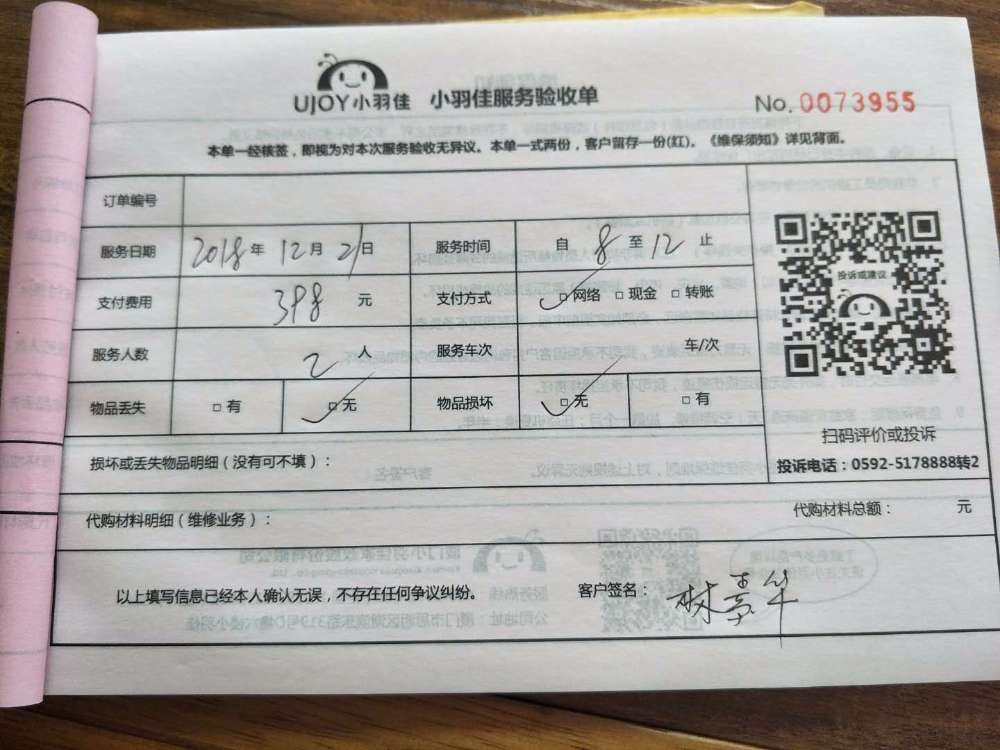 UJOY小羽佳 小羽佳服务验收单 No. 0073955
本单一经核签，即视为对本次服务验收无异议。本单一式两份，客户留存一份(红)。《维保须知》详见背面。
订单编号
服务日期 2018年 12月 21日 服务时间 自 8 至 12 止
支付费用 398 元 支付方式 ☑网络 □现金 □转账
服务人数 2 人 服务车次 车/次
物品丢失 □有 ☑无 物品损坏 ☑无 □有
投诉或建议
扫码评价或投诉
投诉电话：0592-5178888转2
损坏或丢失物品明细（没有可不填）：
代购材料明细（维修业务）： 代购材料总额： 元
以上填写信息已经本人确认无误，不存在任何争议纠纷。 客户签名：